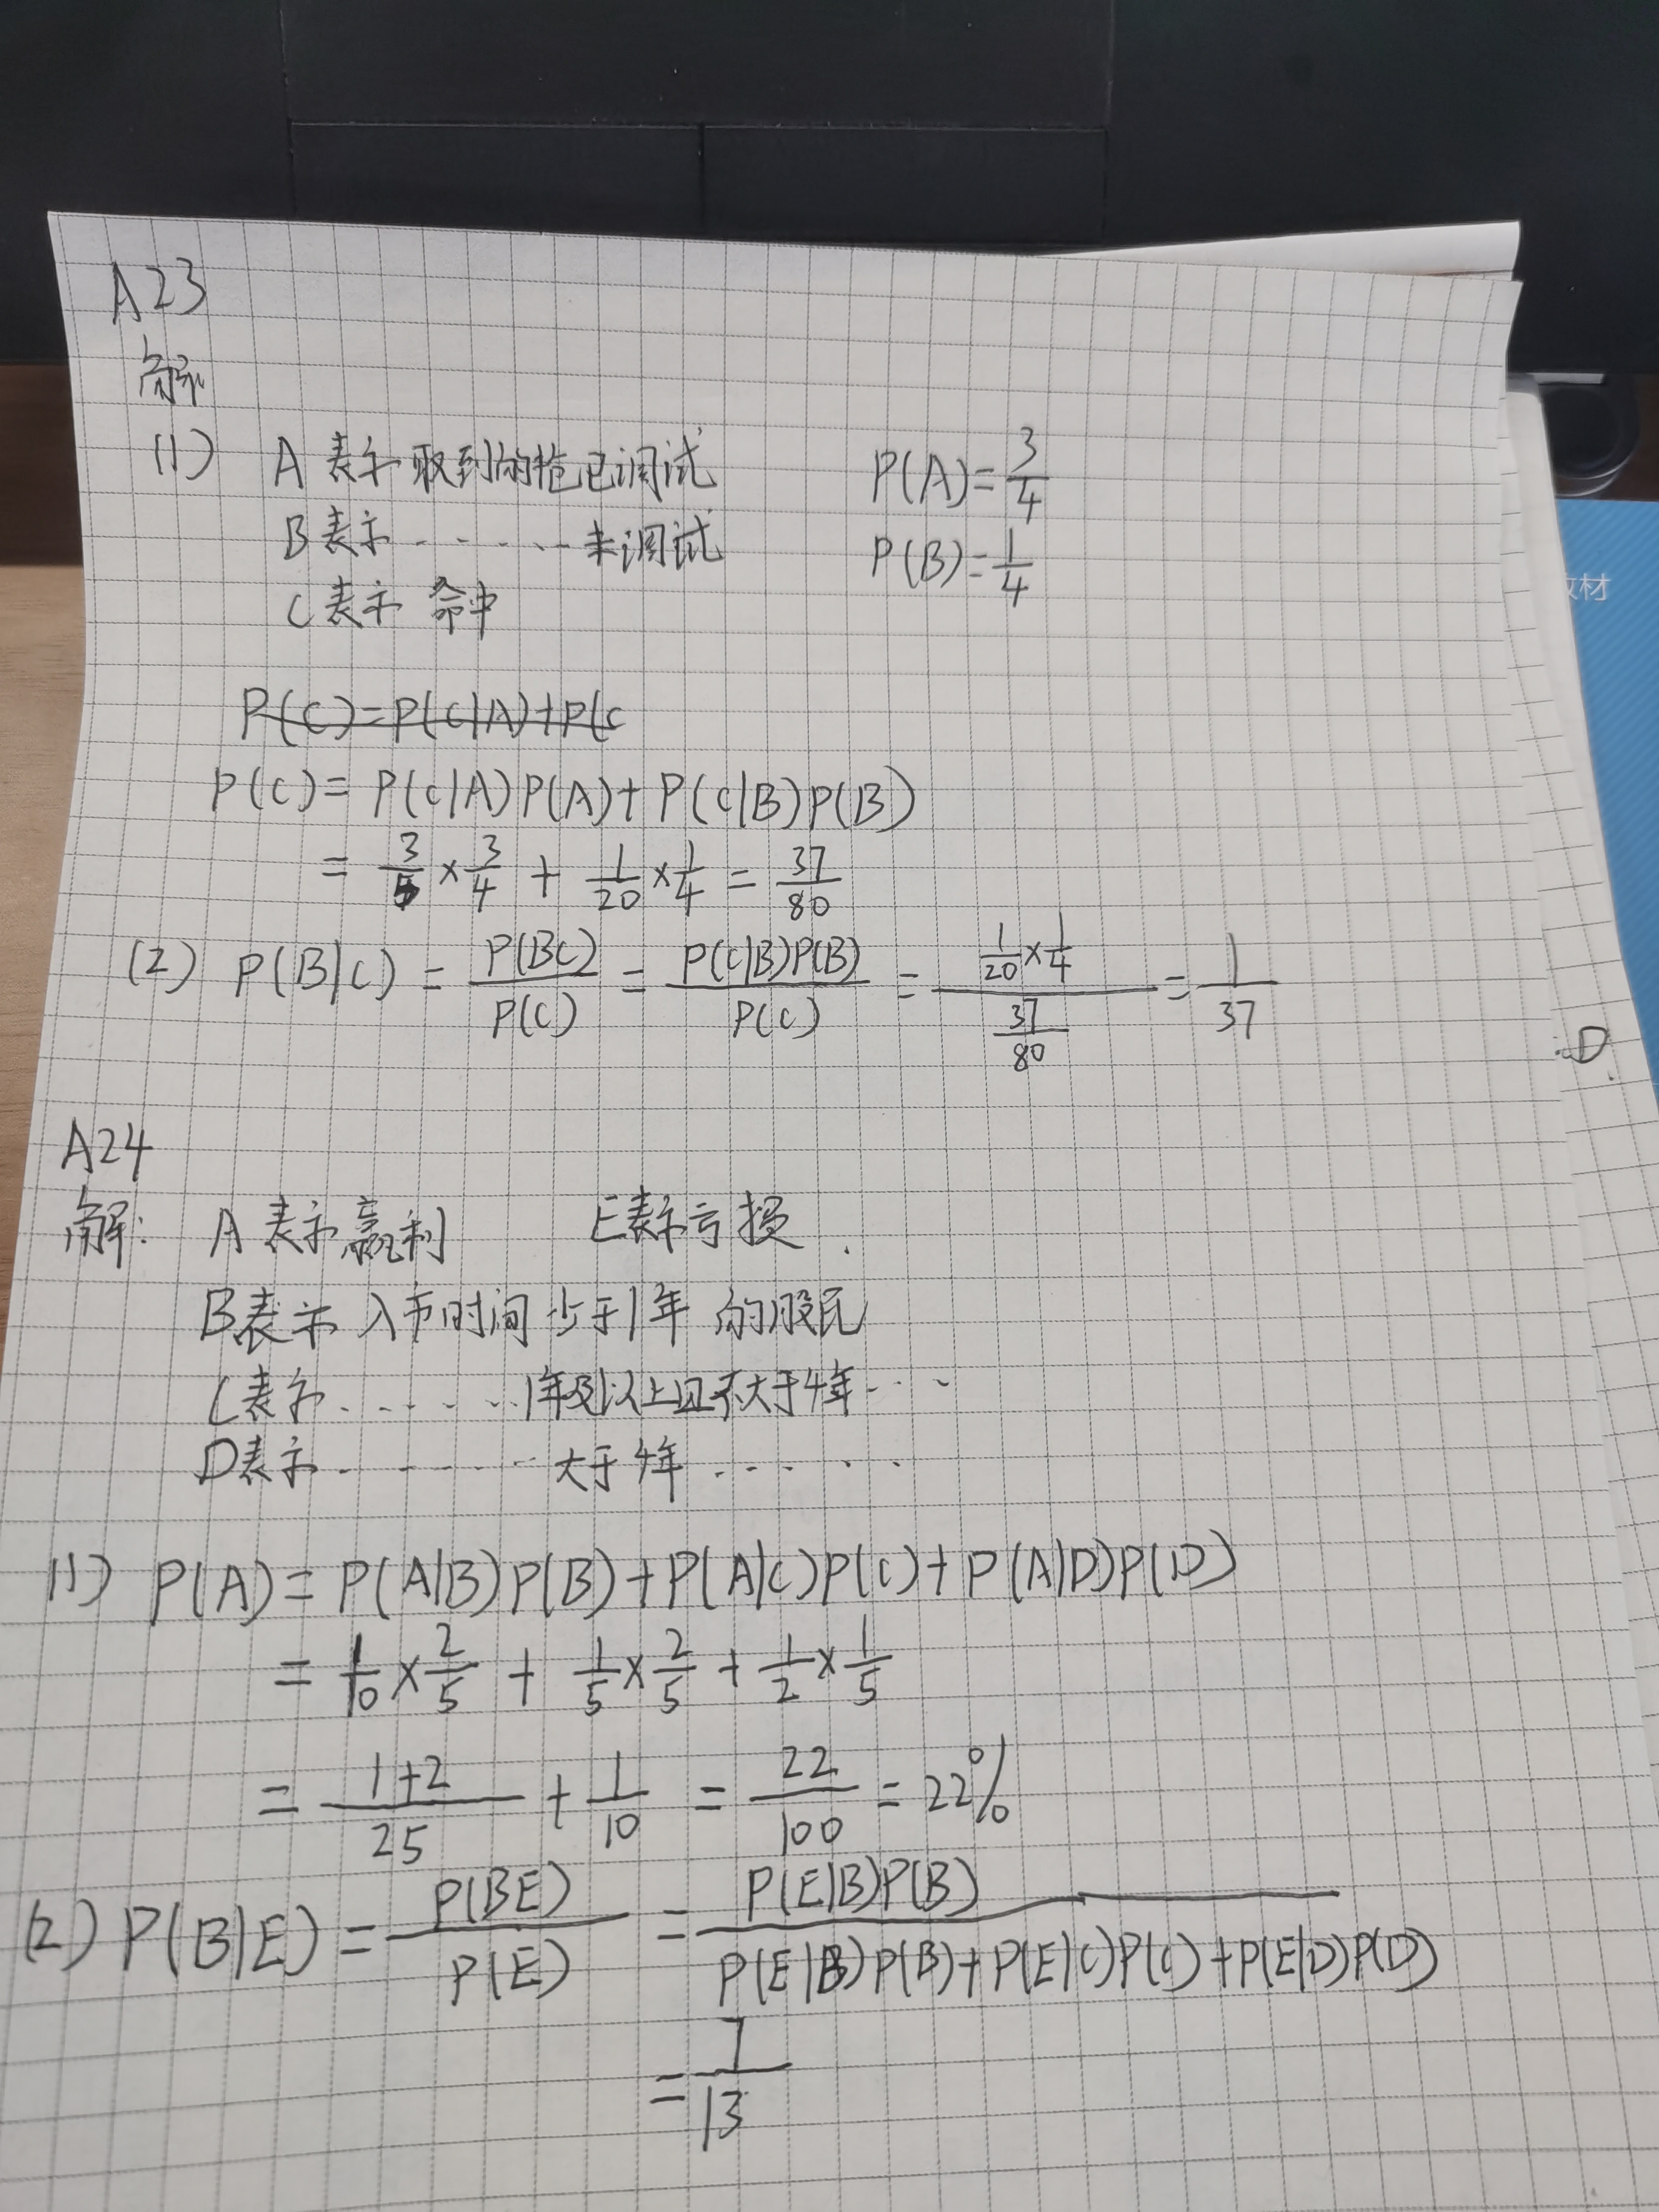 A23
解
(1) A表示取到的枪已调试 P(A)=3/4
B表示......未调试 P(B)=1/4
C表示 命中
P(C)=P(C|A)+P(C
P(C)=P(C|A)P(A)+P(C|B)P(B)
=3/5×3/4+1/20×1/4=37/80
(2) P(B|C)=P(BC)/P(C)=P(C|B)P(B)/P(C)=(1/20×1/4)/(37/80)=1/37
A24
解: A表示赢利 E表示亏损.
B表示入市时间少于1年的股民
C表示......1年及以上且不大于4年....
D表示......大于4年.....
(1) P(A)=P(A|B)P(B)+P(A|C)P(C)+P(A|D)P(D)
=1/10×2/5+1/5×2/5+1/2×1/5
=(1+2)/25+1/10=22/100=22%
(2) P(B|E)=P(BE)/P(E)=P(E|B)P(B)/(P(E|B)P(B)+P(E|C)P(C)+P(E|D)P(D))
=7/13
教材
D